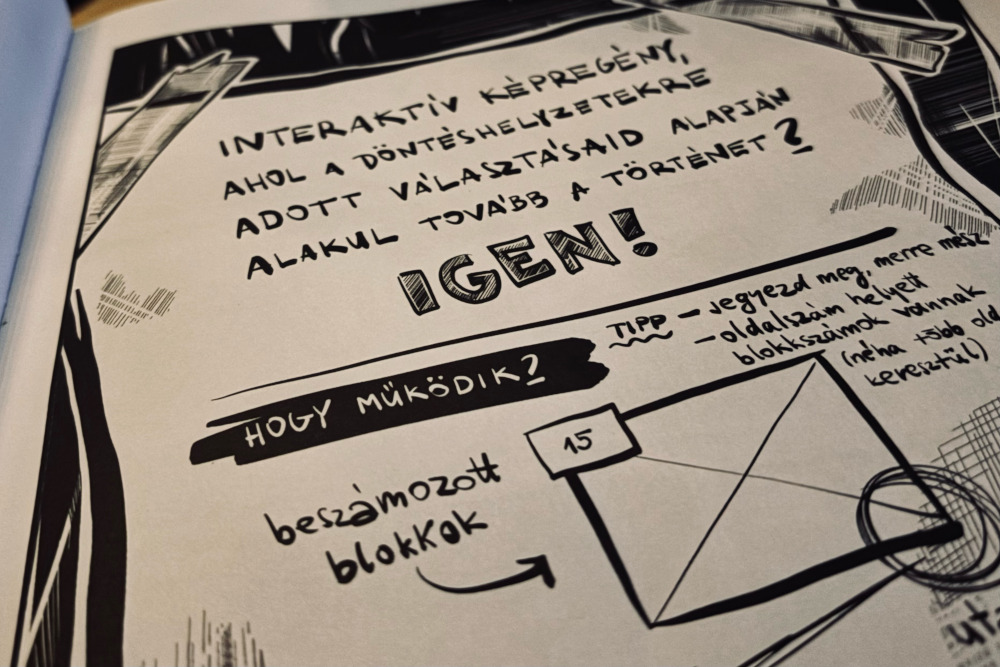 INTERAKTÍV KÉPREGÉNY,
AHOL A DÖNTÉSHELYZETEKRE
ADOTT VÁLASZTÁSAID ALAPJÁN
ALAKUL TOVÁBB A TÖRTÉNET?
IGEN!
TIPP - jegyezd meg, merre mész
- oldalszám helyett
blokkszámok vannak
(néha több
keresztül)
HOGY MŰKÖDIK?
15
beszámozott
blokkok